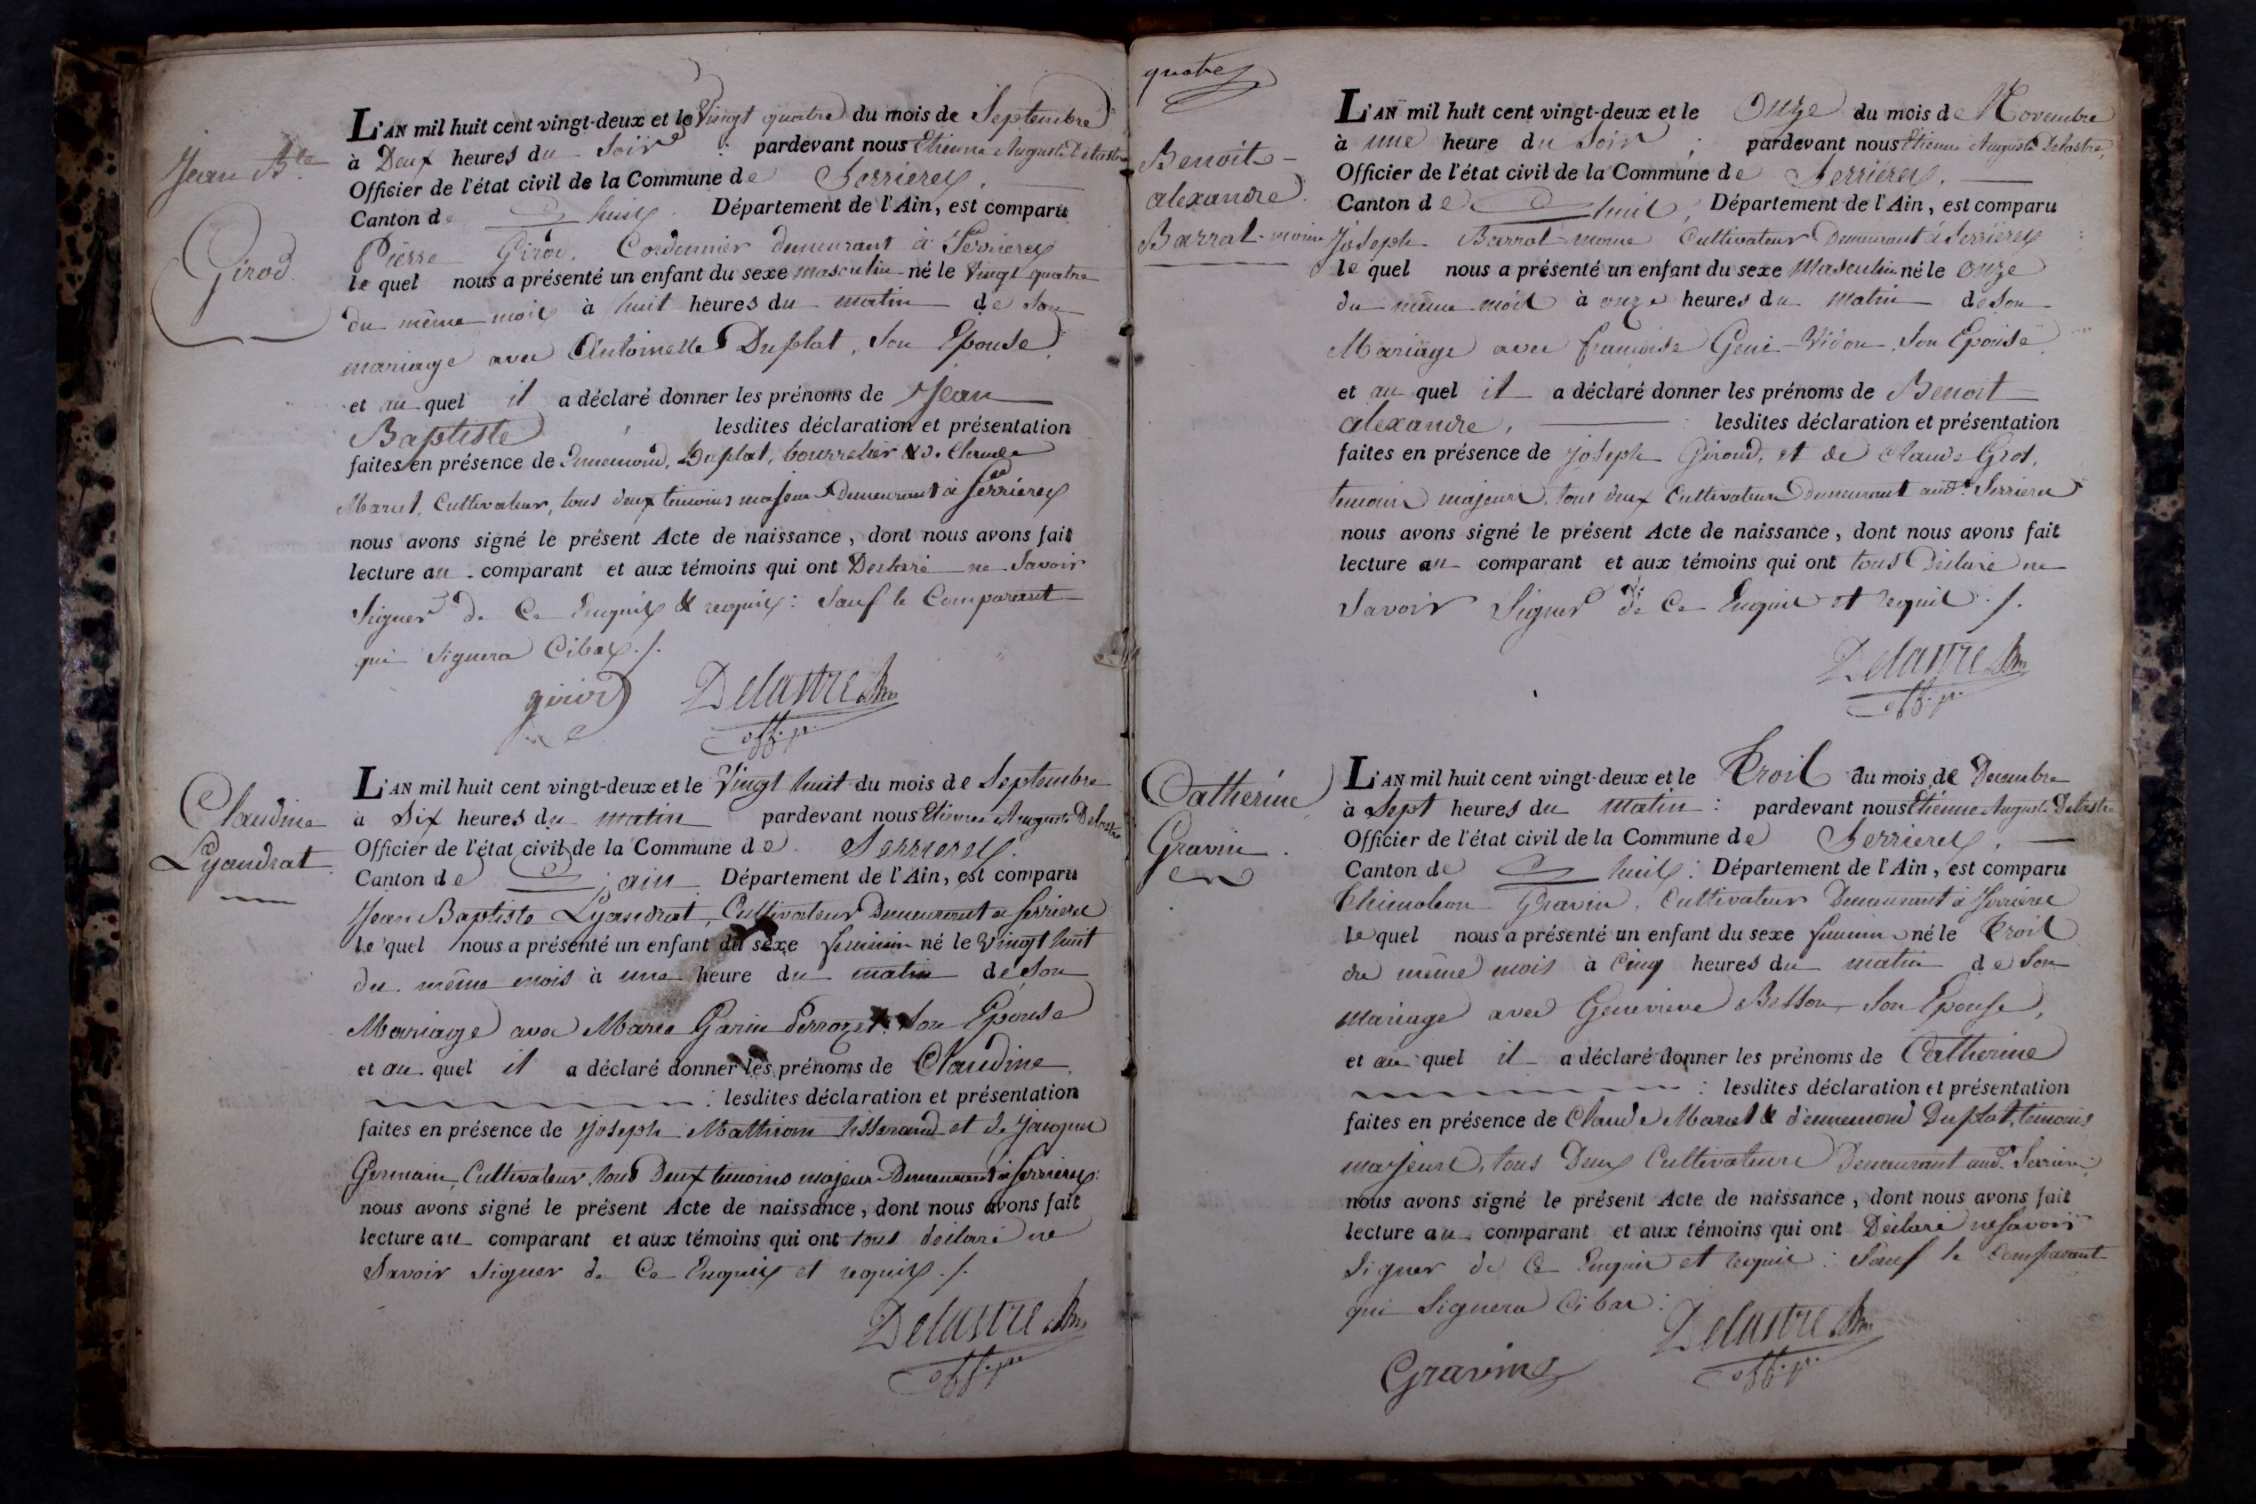 Jean Bte
Girod
L'AN mil huit cent vingt-deux et le Vingt quatre du mois de Septembre
à Deux heures du Soir : pardevant nous Etienne Auguste Delastre
Officier de l'état civil de la Commune de Serrieres.
Canton de huis. Département de l'Ain, est comparu
Pierre Girod, Cordonnier demeurant à Serrieres
le quel nous a présenté un enfant du sexe masculin né le Vingt quatre
du même mois à huit heures du matin de son
mariage avec Antoinette Duplat, son Epouse,
et au quel il a déclaré donner les prénoms de Jean
Baptiste lesdites déclaration et présentation
faites en présence de Duplat, bourrelier & de Claude
Maret, Cultivateur, tous deux temoins majeurs Demeurant à Serrieres
nous avons signé le présent Acte de naissance, dont nous avons fait
lecture au comparant et aux témoins qui ont Declaré ne Savoir
Signer de Ce Enquis & requis : Sauf le Comparant
qui Signera Cibas ./.
girod Delastre adm
off. p.
Claudine
Lyaudrat
L'AN mil huit cent vingt-deux et le Vingt huit du mois de Septembre
à Six heures du matin pardevant nous Etienne Auguste Delastre
Officier de l'état civil de la Commune de Serrieres.
Canton de ain Département de l'Ain, est comparu
Jean Baptiste Lyaudrat, Cultivateur Demeurant à Serrieres
le quel nous a présenté un enfant du sexe feminin né le Vingt huit
du même mois à une heure du matin de Son
Mariage avec Marie Garin Perrozet. Son Epouse
et au quel il a déclaré donner les prénoms de Claudine
: lesdites déclaration et présentation
faites en présence de Joseph Mathieu tisserand et de Jacques
Germain, Cultivateur, tous Deux temoins majeurs Demeurant à Serrieres.
nous avons signé le présent Acte de naissance, dont nous avons fait
lecture au comparant et aux témoins qui ont tous déclaré ne
Savoir Signer de Ce Enquis et requis ./.
Delastre adm
off. p.
quatre
Benoit
alexandre
Barrat-moine
L'AN mil huit cent vingt-deux et le Onze du mois de Novembre
à une heure du Soir ; pardevant nous Etienne Auguste Delastre,
Officier de l'état civil de la Commune de Serrieres.
Canton de huis, Département de l'Ain, est comparu
Joseph Barrat-moine Cultivateur Demeurant à Serrieres
le quel nous a présenté un enfant du sexe Masculin né le Onze
du même mois à onze heures du Matin de Son
Mariage avec françoise Geni-Vidon, Son Epouse
et au quel il a déclaré donner les prénoms de Benoit
alexandre, lesdites déclaration et présentation
faites en présence de Joseph Giroud, et de Claude Grot,
temoins majeurs, tous deux Cultivateurs Demeurant aud.t Serrieres
nous avons signé le présent Acte de naissance, dont nous avons fait
lecture au comparant et aux témoins qui ont tous Déclaré ne
Savoir Signer de Ce Enquis et requis ./.
Delastre adm
off. p.
Catherine
Gravin
L'AN mil huit cent vingt-deux et le Trois du mois de Decembre
à Sept heures du matin : pardevant nous Etienne Auguste Delastre
Officier de l'état civil de la Commune de Serrieres.
Canton de huis : Département de l'Ain, est comparu
Thimoleon Gravin, Cultivateur Demeurant à Serrieres
le quel nous a présenté un enfant du sexe feminin né le Trois
du même mois à Cinq heures du matin de Son
Mariage avec Genevieve Besson, Son Epouse,
et au quel il a déclaré donner les prénoms de Catherine
: lesdites déclaration et présentation
faites en présence de Claude Maret & d'ennemond Duplat, temoins
majeurs, tous Deux Cultivateurs Demeurant aud.t Serrieres.
nous avons signé le présent Acte de naissance, dont nous avons fait
lecture au comparant et aux témoins qui ont Déclaré ne Savoir
Signer de Ce Enquis et requis : Sauf le Comparant
qui Signera Cibas :
Delastre adm
Gravin off. p.